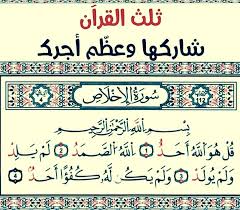 ثلث القرآن
شاركها وعظّم أجرك
سُورَةُ الإِخْلَاصِ
بِسْمِ اللَّهِ الرَّحْمَٰنِ الرَّحِيمِ
قُلْ هُوَ اللَّهُ أَحَدٌ ١ اللَّهُ الصَّمَدُ ٢ لَمْ يَلِدْ
وَلَمْ يُولَدْ ٣ وَلَمْ يَكُن لَّهُ كُفُوًا أَحَدٌ ٤